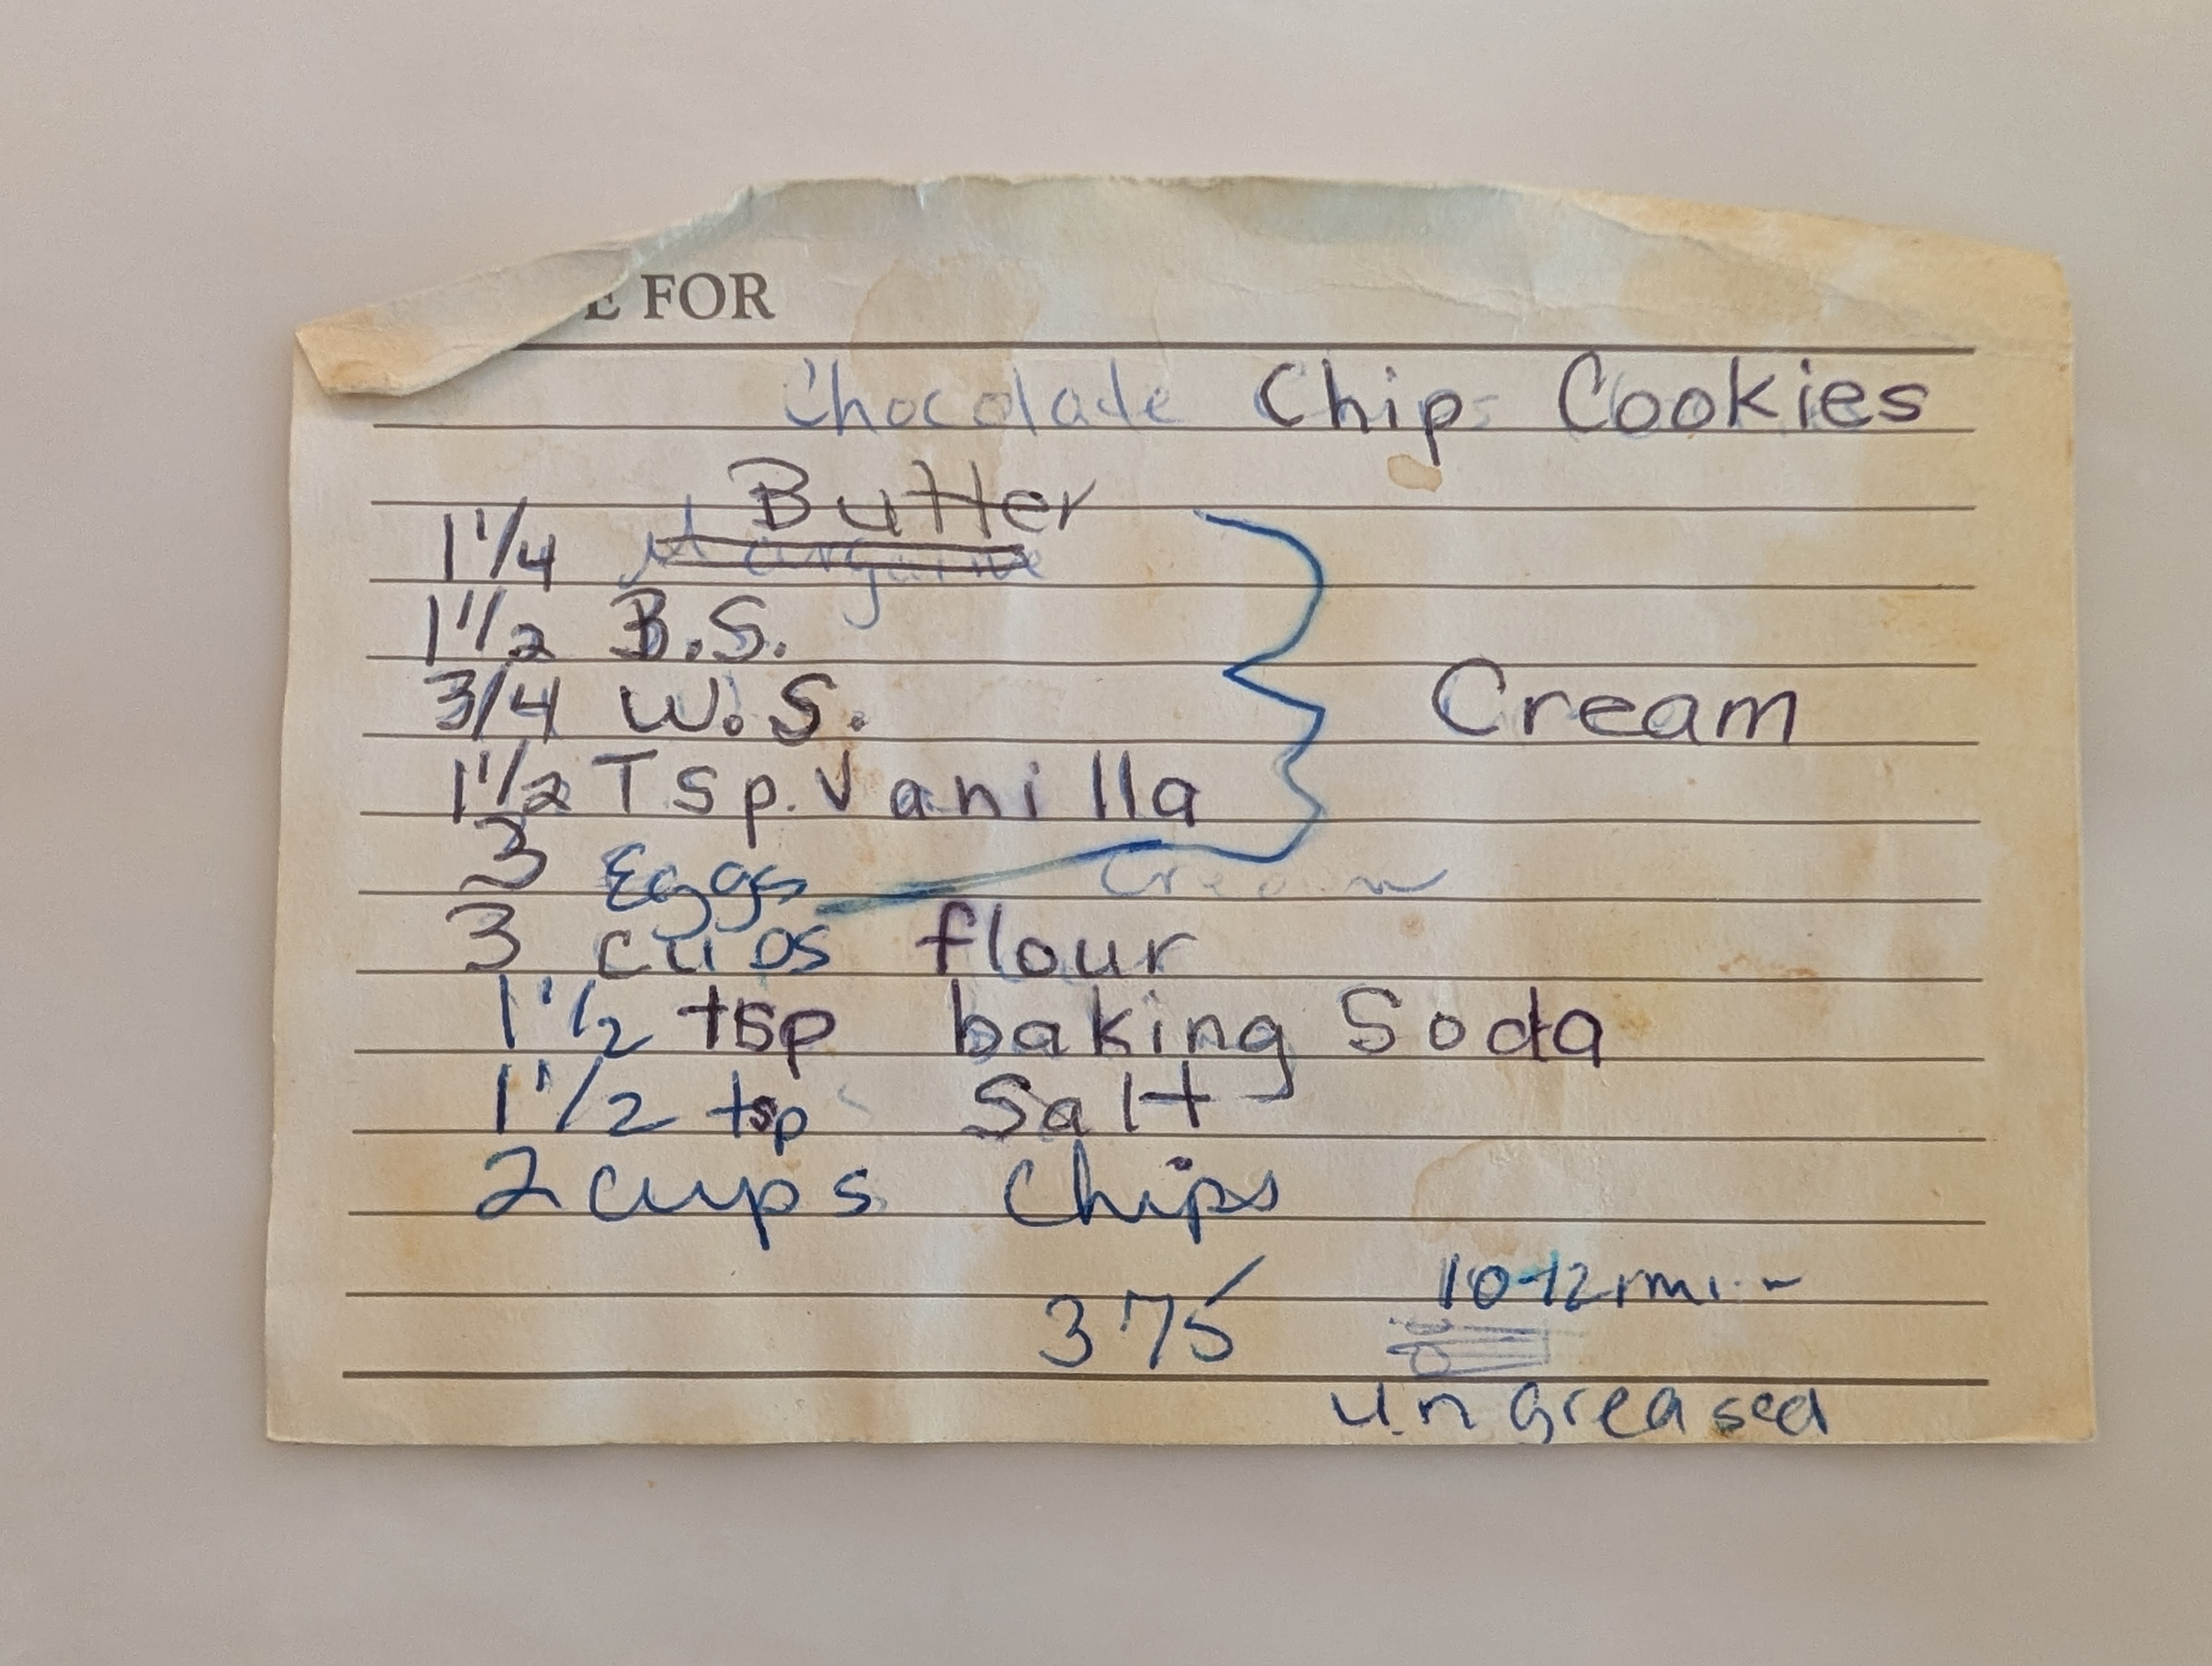 E FOR
Chocolate Chips Cookies
Butter
1 1/4 Margarine
1 1/2 B.S.
3/4 W.S.
Cream
1 1/2 Tsp. Vanilla
3 Eggs
Cream
3 cups flour
1 1/2 tsp baking Soda
1 1/2 tsp Salt
2 cups Chips
375 10-12 min
ungreased